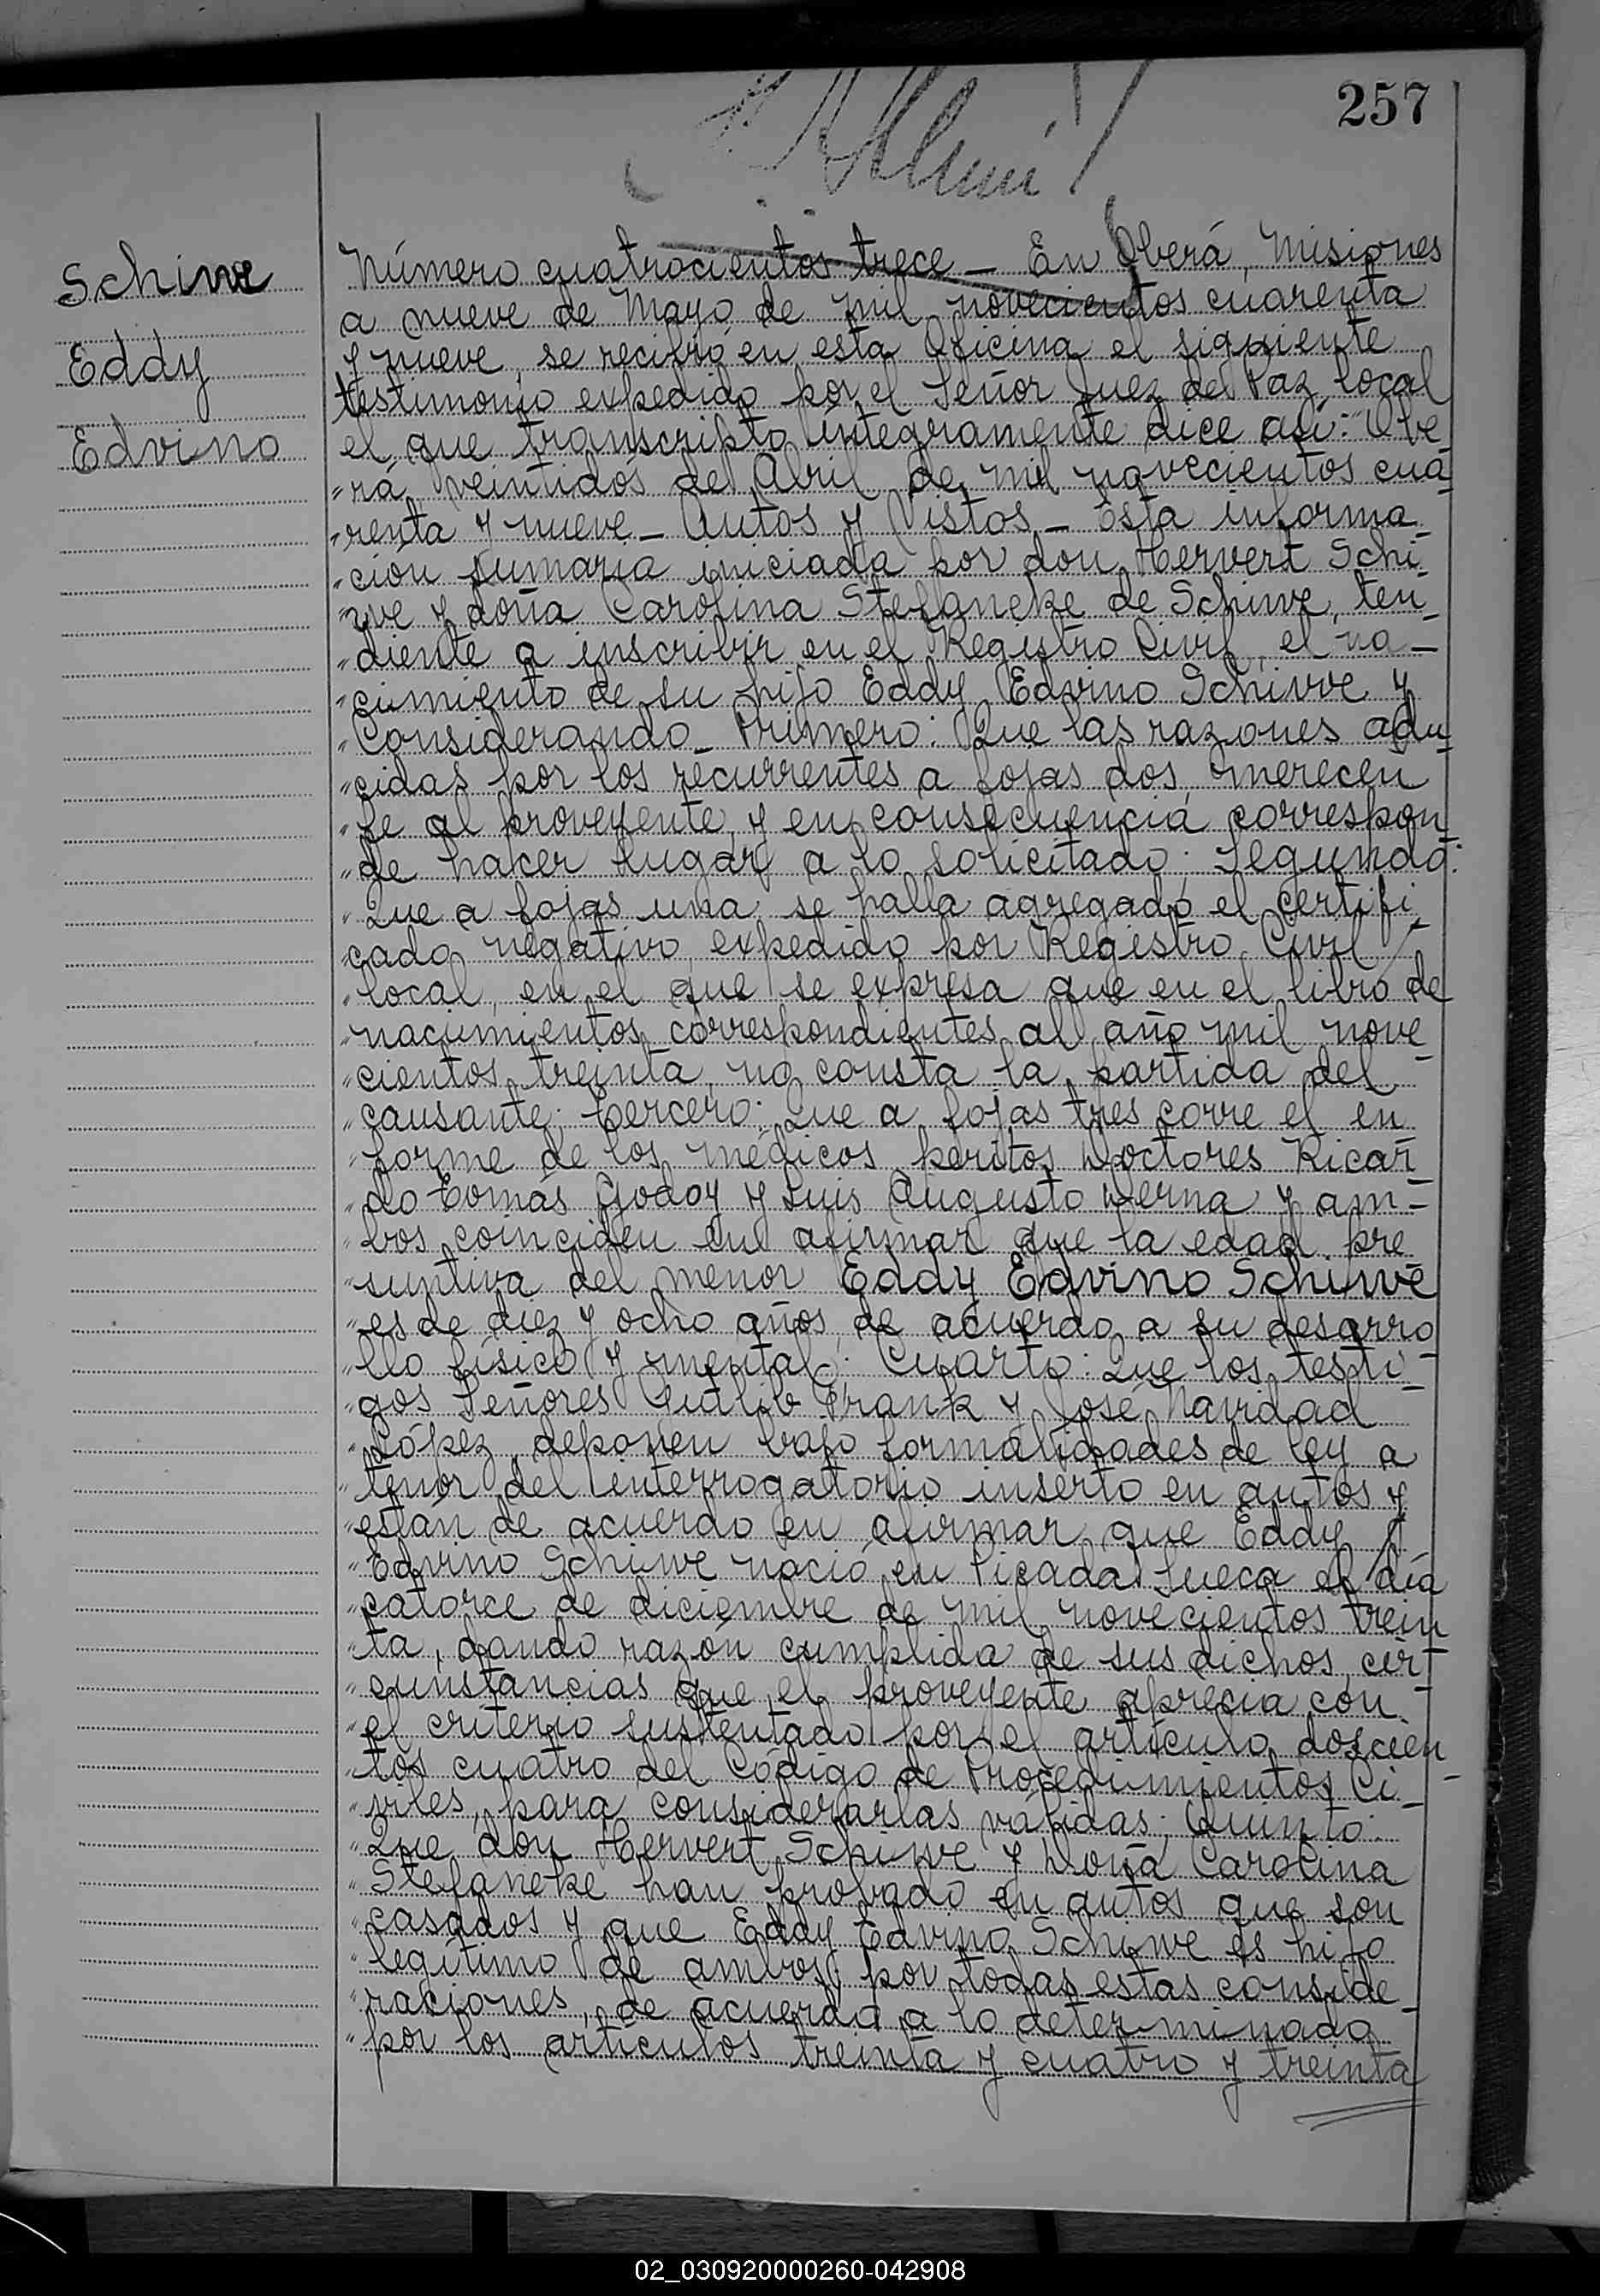 257
Schiwe
Eddy
Edvino
Número cuatrocientos trece _ En Oberá, Misiones
a nueve de Mayo de mil novecientos cuarenta
y nueve, se recibió en esta Oficina el siguiente
testimonio expedido por el Señor Juez de Paz local
el que transcripto íntegramente dice así: "Obe
"rá, veintidos de Abril de mil novecientos cua-
"renta y nueve _ Autos y Vistos _ Esta informa-
"ción sumaria iniciada por don Hervert Schi-
"we y doña Carolina Stefaneke de Schiwe, ten-
"diente a inscribir en el Registro Civil, el na-
"cimiento de su hijo Eddy Edvino Schiwe y
"Considerando _ Primero: Que las razones adu-
"cidas por los recurrentes a fojas dos, merecen
"fe al proveyente, y en consecuencia correspon-
"de hacer lugar a lo solicitado; Segundo:
"Que a fojas una se halla agregado el certifi-
"cado negativo expedido por Registro Civil
"local, en el que se expresa que en el libro de
"nacimientos correspondientes al año mil nove-
"cientos treinta, no consta la partida del
"causante; Tercero: Que a fojas tres corre el in
"forme de los médicos peritos Doctores Ricar-
"do Tomás Godoy y Luis Augusto Derna y am-
"bos coinciden en afirmar que la edad pre
"suntiva del menor Eddy Edvino Schiwe
"es de diez y ocho años, de acuerdo a su desarro-
"llo físico y mental; Cuarto: Que los testi-
"gos Señores Frank y José Navidad
"López, deponen bajo formalidades de ley a
"tenor del interrogatorio inserto en autos y
"están de acuerdo en afirmar que Eddy
"Edvino Schiwe nació en Picada Sueca el día
"catorce de diciembre de mil novecientos trein-
"ta, dando razón cumplida de sus dichos, cir-
"cunstancias que el proveyente aprecia con
"el criterio sustentado por el artículo doscien-
"tos cuatro del Código de Procedimientos Ci-
"viles, para considerarlas válidas; Quinto:
"Que don Hervert Schiwe y Doña Carolina
"Stefaneke han probado en autos que son
"casados y que Eddy Edvino Schiwe es hijo
"legítimo de ambos; por todas estas conside-
"raciones, de acuerdo a lo determinado
"por los artículos treinta y cuatro y treinta
02_030920000260-042908